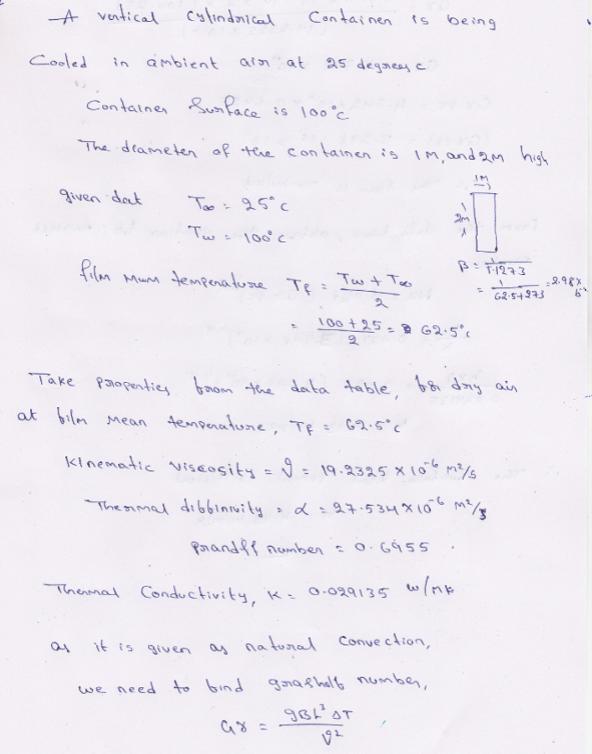 A vertical Cylindrical Container is being
Cooled in ambient air at 25 degrees c
Container Surface is 100°c
The diameter of the container is 1M, and 2M high
1M
given dat T∞ = 25°c
Tw = 100°c
2m
film mum temperature Tf = Tw + T∞ / 2
= 100 + 25 / 2 = 62.5°c
β = 1 / T+273
= 1 / 62.5+273 = 2.98×
Take properties from the data table, for dry air
at film mean temperature, Tf = 62.5°c
Kinematic viscosity = ϑ = 19.2325 × 10⁻⁶ m²/s
Thermal diffinivity = α = 27.534 × 10⁻⁶ m²/s
prandtl number = 0.6955
Thermal Conductivity, K = 0.029135 w/mk
as it is given as natural convection,
we need to find grashoff number,
Gr = gBL³ ΔT / ϑ²